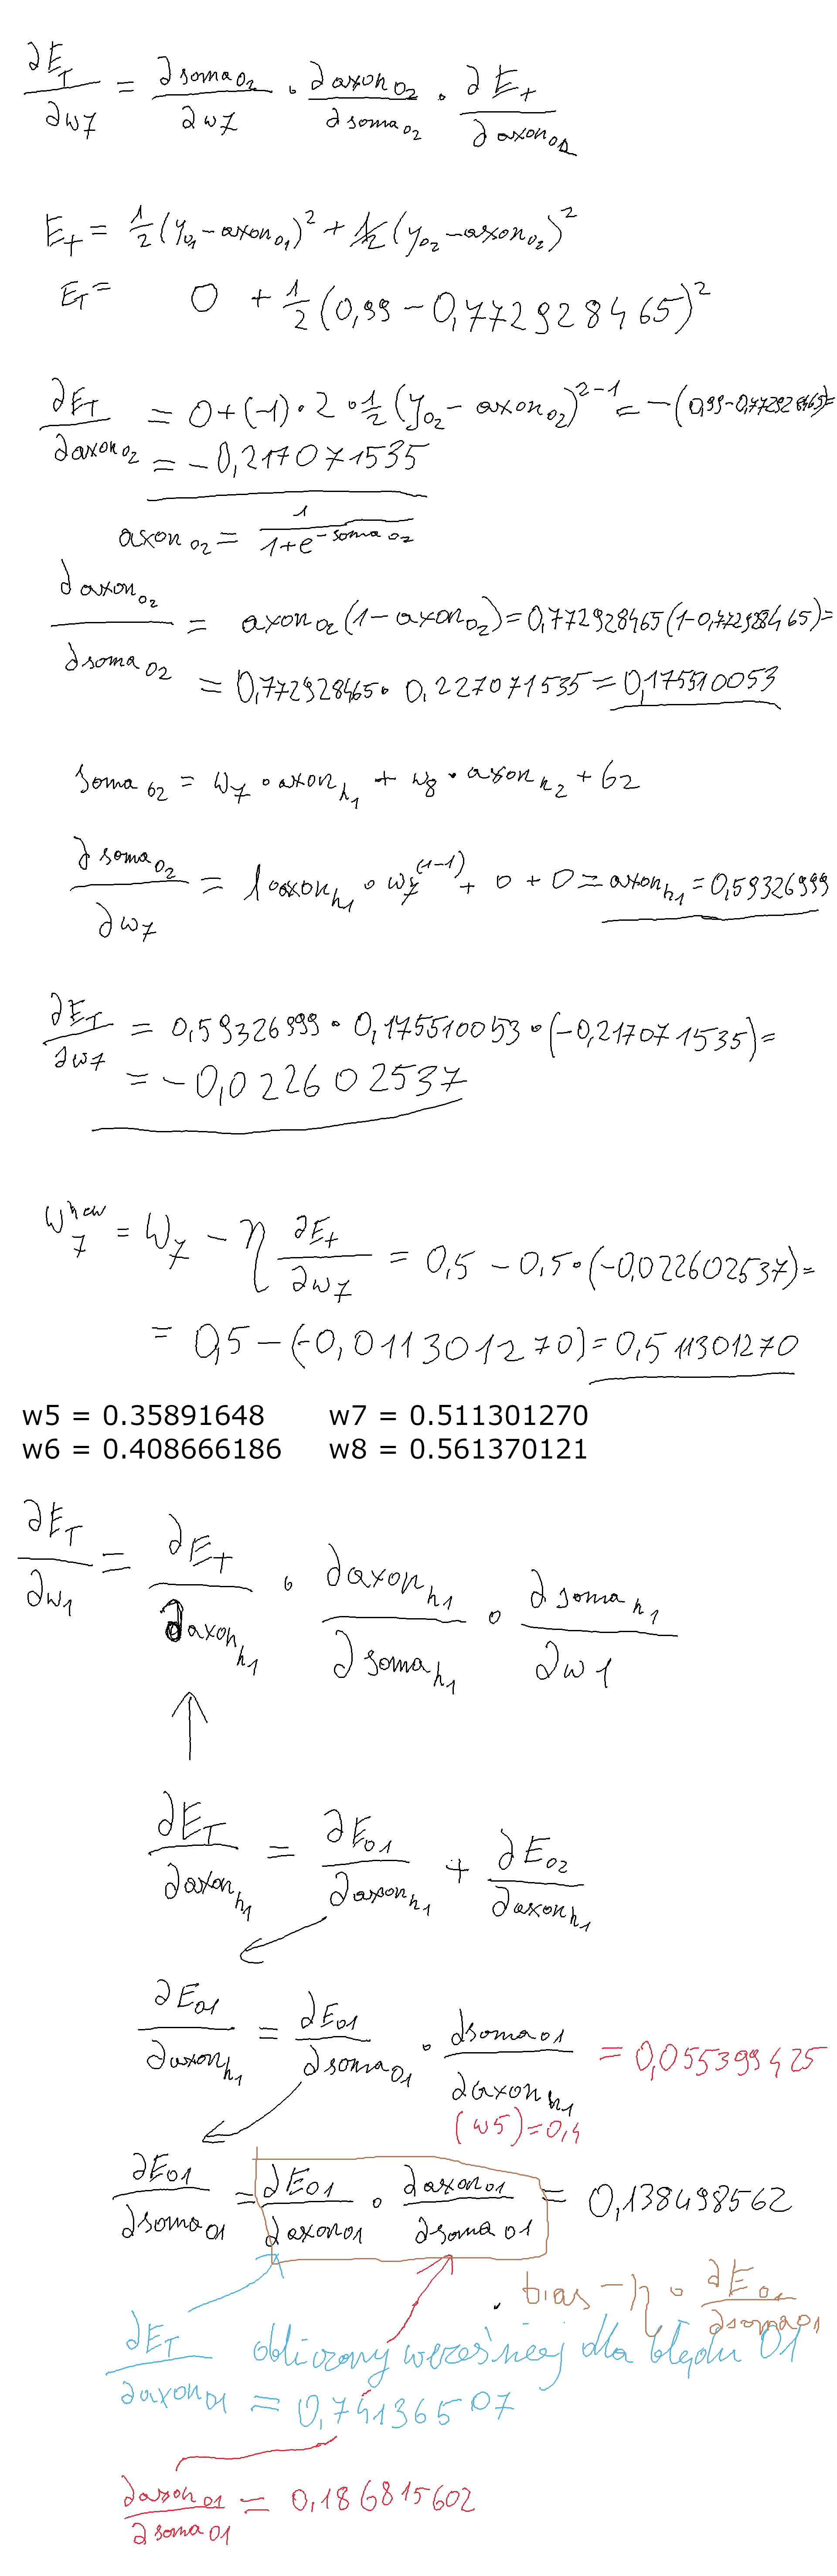 ∂E_T/∂w7 = ∂soma_o2/∂w7 · ∂axon_o2/∂soma_o2 · ∂E_t/∂axon_o2
E_t = 1/2 (y_o1 - axon_o1)^2 + 1/2 (y_o2 - axon_o2)^2
E_T = 0 + 1/2 (0,99 - 0,772928465)^2
∂E_T/∂axon_o2 = 0 + (-1) · 2 · 1/2 (y_o2 - axon_o2)^(2-1) = -(0,99 - 0,772928465) =
= -0,217071535
axon_o2 = 1/(1+e^(-soma_o2))
∂axon_o2/∂soma_o2 = axon_o2 (1 - axon_o2) = 0,772928465 (1 - 0,772928465) =
= 0,772928465 · 0,227071535 = 0,175510053
soma_o2 = w7 · axon_h1 + w8 · axon_h2 + b2
∂soma_o2/∂w7 = 1 · axon_h1 · w7^(1-1) + 0 + 0 = axon_h1 = 0,59326999
∂E_T/∂w7 = 0,59326999 · 0,175510053 · (-0,217071535) =
= -0,022602537
w7^new = w7 - η ∂E_t/∂w7 = 0,5 - 0,5 · (-0,022602537) =
= 0,5 - (-0,011301270) = 0,511301270
w5 = 0.35891648 w7 = 0.511301270
w6 = 0.408666186 w8 = 0.561370121
∂E_T/∂w1 = ∂E_T/∂axon_h1 · ∂axon_h1/∂soma_h1 · ∂soma_h1/∂w1
∂E_T/∂axon_h1 = ∂E_o1/∂axon_h1 + ∂E_o2/∂axon_h1
∂E_o1/∂axon_h1 = ∂E_o1/∂soma_o1 · ∂soma_o1/∂axon_h1 = 0,055399425
(w5) = 0,4
∂E_o1/∂soma_o1 = ∂E_o1/∂axon_o1 · ∂axon_o1/∂soma_o1 = 0,138498562
bias - η · ∂E_o1/∂soma_o1
∂E_T/∂axon_o1 obliczony wcześniej dla błędu O1
= 0,74136507
∂axon_o1/∂soma_o1 = 0,186815602